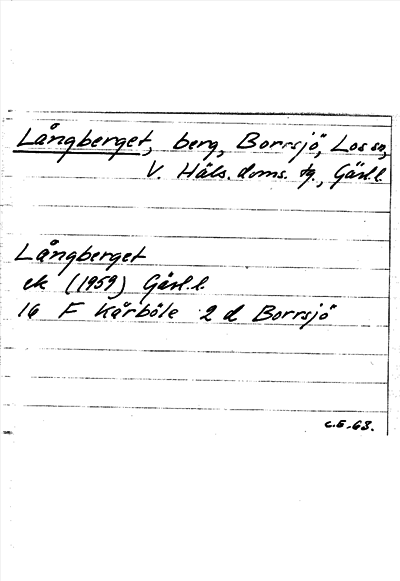 Långberget, berg, Borrsjö, Los sn,
V. Häls. doms. tg., Gävl. l.
Långberget
ek (1959) Gävl. l.
16 F Kårböle 2 d Borrsjö
C.E. -63.